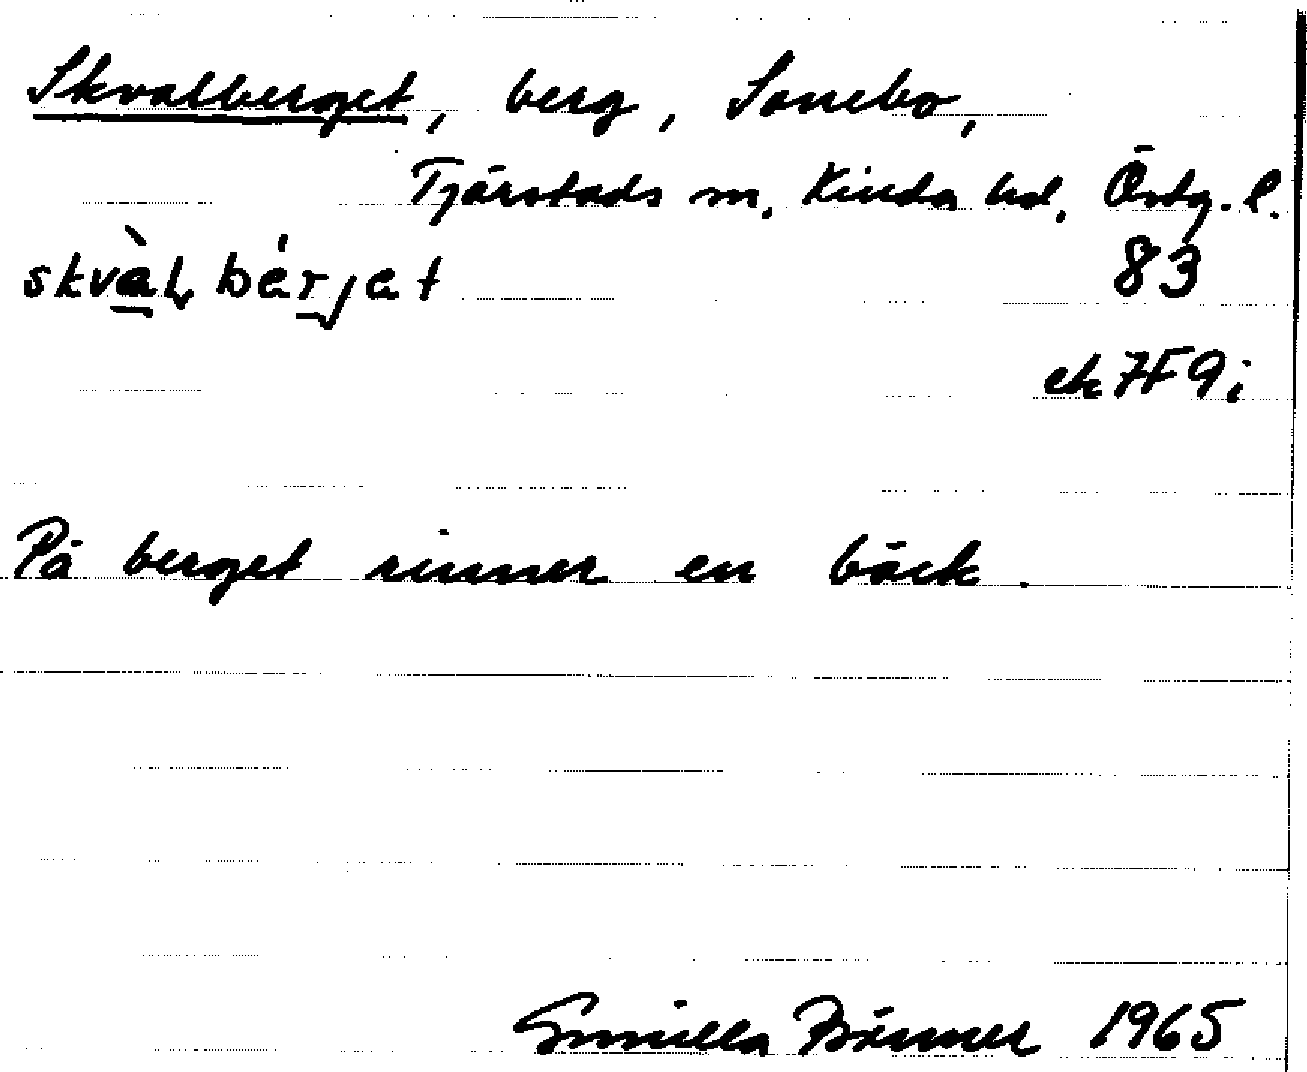 Skvalberget, berg, Sonebo,
Tjärstads sn, Kinda hd, Östg. l.
skvàḷ bérjet
83
ek 7F9i
På berget rinner en bäck.
Gunilla Bönner 1965